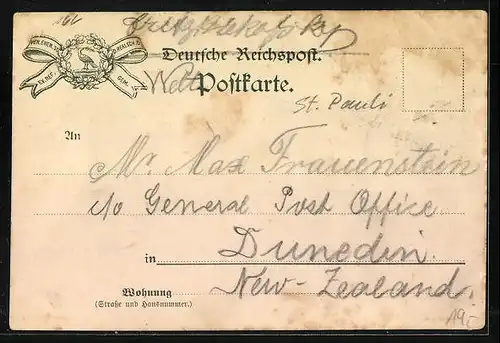 166
Deutsche Reichspost.
Postkarte.
St. Pauli
An
Mr. Max Frauenstein
c/o General Post Office
in Dunedin.
New-Zealand.
Wohnung
(Straße und Hausnummer.)
19.-